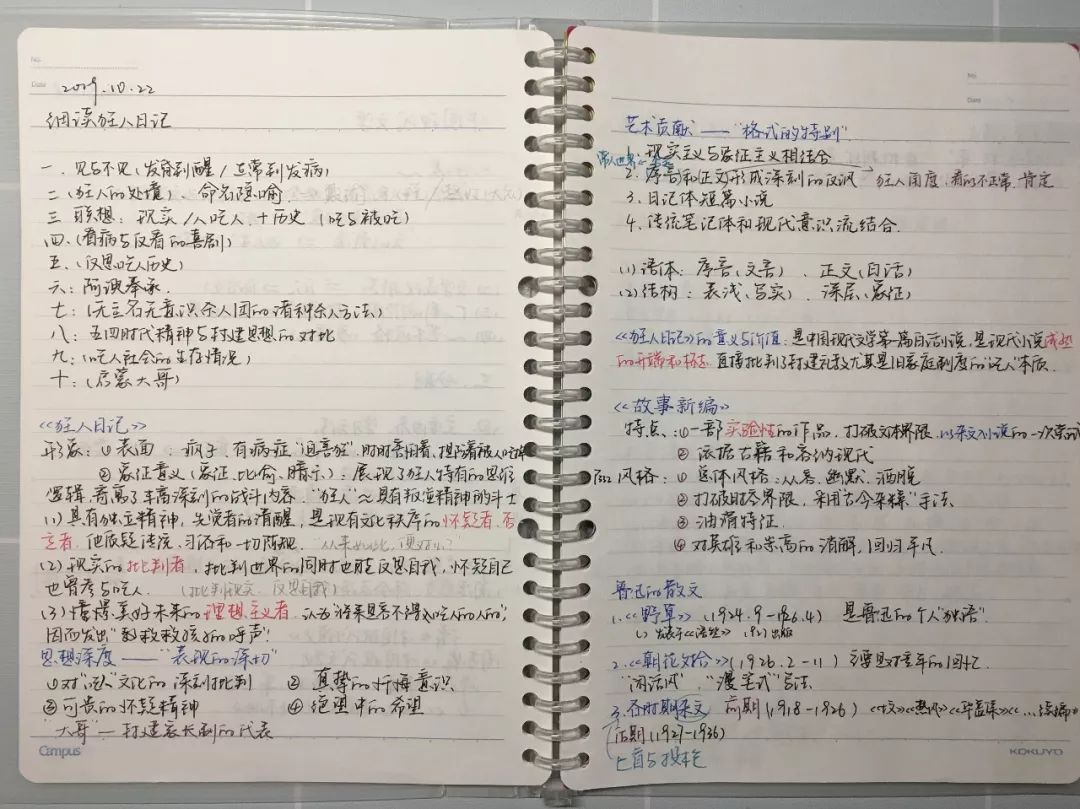 No.
Date 2019.10.22
细读狂人日记
一. 见与不见(发育到醒/正常到发病)
二. (狂人的处境) 命名隐喻
三. 联想: 现实/人吃人 + 历史 (吃与被吃)
四. (看病与反看的喜剧)
五. (反思吃人历史)
六: 阿谀奉承.
七: (无主名无意识杀人团的诸种杀人方法)
八: 五四时代精神与封建思想的对比
九: (吃人社会的生存情况)
十: (启蒙大哥)
《狂人日记》
形象: ① 表面: 疯子. 有病症"迫害狂". 时时
② 象征意义(象征、比喻、暗示): 展现了狂人特有的思维
逻辑, 寄寓了丰富深刻的战斗内容. "狂人"~具有叛逆精神的斗士
(1) 具有独立精神, 先觉者的清醒, 是现有文化秩序的怀疑者、否
定者. 他质疑传统、习俗和一切陈规. "从来如此, 便对么?"
(2) 现实的批判者, 批判世界的同时也能反思自我, 怀疑自己
也曾参与吃人. (批判现实、反思自我)
(3) 憧憬美好未来的理想主义者. 认为"将来是容不得吃人的人的";
因而发出"救救孩子的呼声"!
思想深度 —— "表现的深切"
① 对"吃人"文化的深刻批判 ② 真挚的忏悔意识
③ 可贵的怀疑精神 ④ 绝望中的希望
"大哥" — 封建家长制的代表
Campus
No.
Date
艺术贡献 —— "格式的特别"
1. 现实主义与象征主义相结合
常人世界
2. 序言和正文形成深刻的反讽 → 狂人角度, 看的不正常, 肯定
3. 日记体短篇小说
4. 传统笔记体和现代意识流结合.
(1) 语体: 序言(文言) 、正文(白话)
(2) 结构: 表浅(写实) 、深层(象征)
《狂人日记》的意义与价值: 是中国现代文学第一篇白话小说, 是现代小说成熟
的开端和标志. 直接批判了封建礼教尤其是旧家庭制度的"吃人"本质.
《故事新编》
特点: ① 一部实验性的作品, 打破文本界限, 以杂文入小说的一次尝试
② 依据古籍和容纳现代
P202 风格: ① 总体风格: 从容、幽默、洒脱
② 打破时态界限, 采用"古今杂糅"手法
③ 油滑特征.
④ 对英雄和崇高的消解, 回归平凡.
鲁迅的散文
1. 《野草》(1924.9-1926.4) 是鲁迅的个人"独语"
(1) 发表于《语丝》 出版
2. 《朝花夕拾》(1926.2-11) 主要是对童年的回忆.
"闲话风". "漫笔式"写法
3. 各时期杂文 前期(1918-1926) 《坟》《热风》《华盖集》《…续编》
后期(1927-1936)
匕首与投枪
KOKUYO